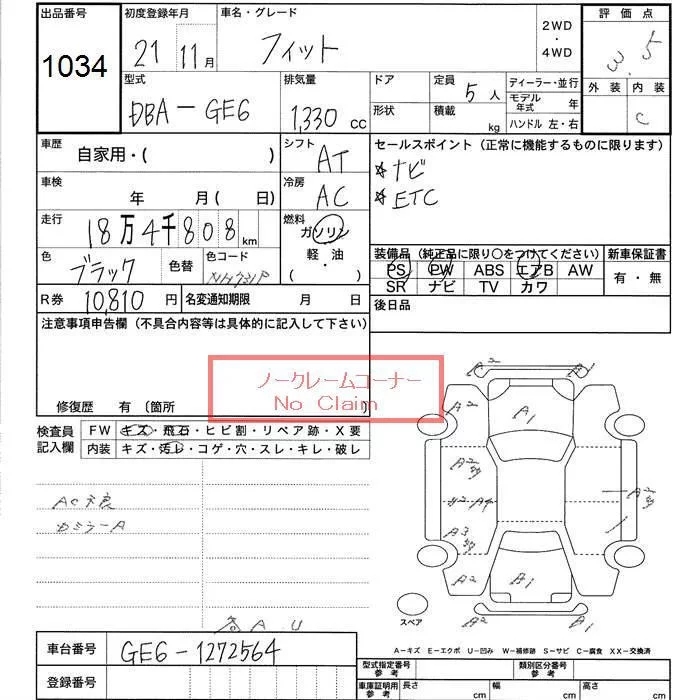 出品番号
1034
初度登録年月
21 11月
車名・グレード
フィット
2WD
・
4WD
評価点
3.5
外装 内装
C
型式
DBA-GE6
排気量
1,330 cc
ドア
形状
定員
5人
積載
kg
ディーラー・並行
モデル年式 年
ハンドル 左・右
車歴
自家用・( )
シフト
AT
セールスポイント(正常に機能するものに限ります)
☆ナビ
☆ETC
車検
年 月( 日)
冷房
AC
走行
18万4千808km
燃料
ガソリン
軽・油
( ・ )
色
ブラック
色替
色コード
NH731P
装備品(純正品に限り○をつけてください)
PS PW ABS エアB AW
SR ナビ TV カワ
新車保証書
有・無
R券 10,810円
名変通知期限 月 日
後日品
注意事項申告欄(不具合内容等は具体的に記入して下さい)
ノークレームコーナー
No Claim
修復歴 有〔箇所
検査員記入欄
FW キズ・飛石・ヒビ割・リペア跡・X要
内装 キズ・汚レ・コゲ・穴・スレ・キレ・破レ
AC不良
A2
A2
A1
A2
A2
A4
A3
A2
A1
A1
スペア
A U
A-キズ E-エクボ U-凹み W-補修跡 S-サビ C-腐食 XX-交換済
車台番号 GE6-1272564
登録番号
型式指定番号 参考
類別区分番号 参考
車庫証明用 参考
長さ cm
幅 cm
高さ cm